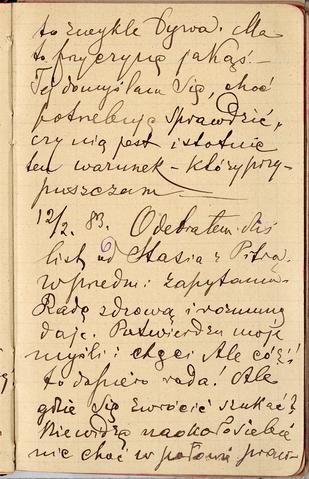 to zwykle bywa. Ma
to przyczynę jakąś.
Tej domyślam się, choć
potrzebuję sprawdzić,
czy nią jest istotnie
ten warunek - który przy-
puszczam.
12/2. 83. Odebrałem dziś
list od Stasia z Pitrą.
w przedm: zapytania.
Radę zdrową i rozumną
daje. Potwierdza moje
myśli i chęci Ale cóż!
to dopiero rada! Ale
gdzie się zwrócić szukać?
Niewidzę naokoło siebie
nic choć w połowie praw-